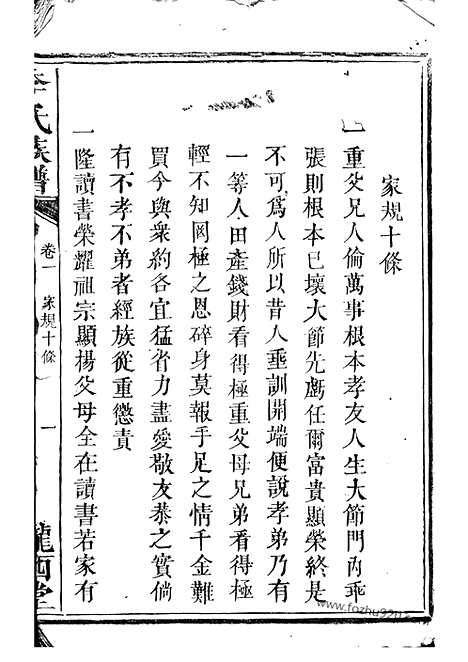 家規十條
一重父兄人倫萬事根本孝友人生大節門內乖
張則根本已壞大節先虧任爾富貴顯榮終是
不可為人所以昔人垂訓開端便說孝弟乃有
一等人田產錢財看得極重父母兄弟看得極
輕不知罔極之恩碎身莫報手足之情千金難
買今與衆約各宜猛省力盡愛敬友恭之實倘
有不孝不弟者經族從重懲責
一隆讀書榮耀祖宗顯楊父母全在讀書若家有
李氏族譜
卷一
家規十條
一
隴西堂
www.fozhu920.com